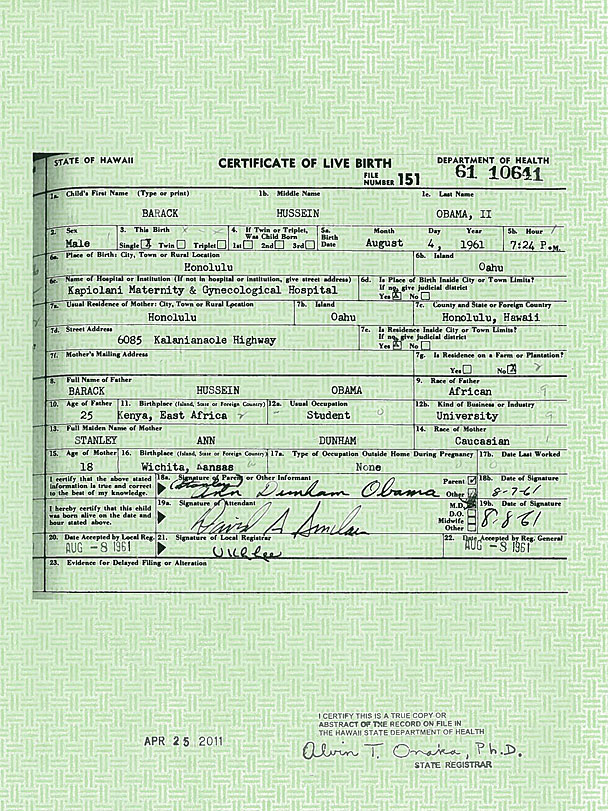 STATE OF HAWAII CERTIFICATE OF LIVE BIRTH DEPARTMENT OF HEALTH
FILE NUMBER 151 61 10641
1a. Child's First Name (Type or print) 1b. Middle Name 1c. Last Name
BARACK HUSSEIN OBAMA, II
2. Sex 3. This Birth 4. If Twin or Triplet, Was Child Born 5a. Birth Date Month Day Year 5b. Hour
Male Single X Twin Triplet 1st 2nd 3rd August 4, 1961 7:24 P.M.
6a. Place of Birth: City, Town or Rural Location 6b. Island
Honolulu Oahu
6c. Name of Hospital or Institution (If not in hospital or institution, give street address) 6d. Is Place of Birth Inside City or Town Limits? If no, give judicial district
Kapiolani Maternity & Gynecological Hospital Yes X No
7a. Usual Residence of Mother: City, Town or Rural Location 7b. Island 7c. County and State or Foreign Country
Honolulu Oahu Honolulu, Hawaii
7d. Street Address 7e. Is Residence Inside City or Town Limits? If no, give judicial district
6085 Kalanianaole Highway Yes X No
7f. Mother's Mailing Address 7g. Is Residence on a Farm or Plantation?
Yes No X
8. Full Name of Father 9. Race of Father
BARACK HUSSEIN OBAMA African 9
10. Age of Father 11. Birthplace (Island, State or Foreign Country) 12a. Usual Occupation 12b. Kind of Business or Industry
25 Kenya, East Africa Student 0 University
13. Full Maiden Name of Mother 14. Race of Mother
STANLEY ANN DUNHAM Caucasian
15. Age of Mother 16. Birthplace (Island, State or Foreign Country) 17a. Type of Occupation Outside Home During Pregnancy 17b. Date Last Worked
18 Wichita, Kansas None
I certify that the above stated information is true and correct to the best of my knowledge. 18a. Signature of Parent or Other Informant Parent Other 18b. Date of Signature
(Stanley) Ann Dunham Obama 8-7-61
I hereby certify that this child was born alive on the date and hour stated above. 19a. Signature of Attendant M.D. D.O. Midwife Other 19b. Date of Signature
David A Sinclair 8-8-61
20. Date Accepted by Local Reg. 21. Signature of Local Registrar 22. Date Accepted by Reg. General
AUG -8 1961 U K L Lee AUG -8 1961
23. Evidence for Delayed Filing or Alteration
I CERTIFY THIS IS A TRUE COPY OR
ABSTRACT OF THE RECORD ON FILE IN
THE HAWAII STATE DEPARTMENT OF HEALTH
APR 25 2011
Alvin T. Onaka, Ph.D.
STATE REGISTRAR